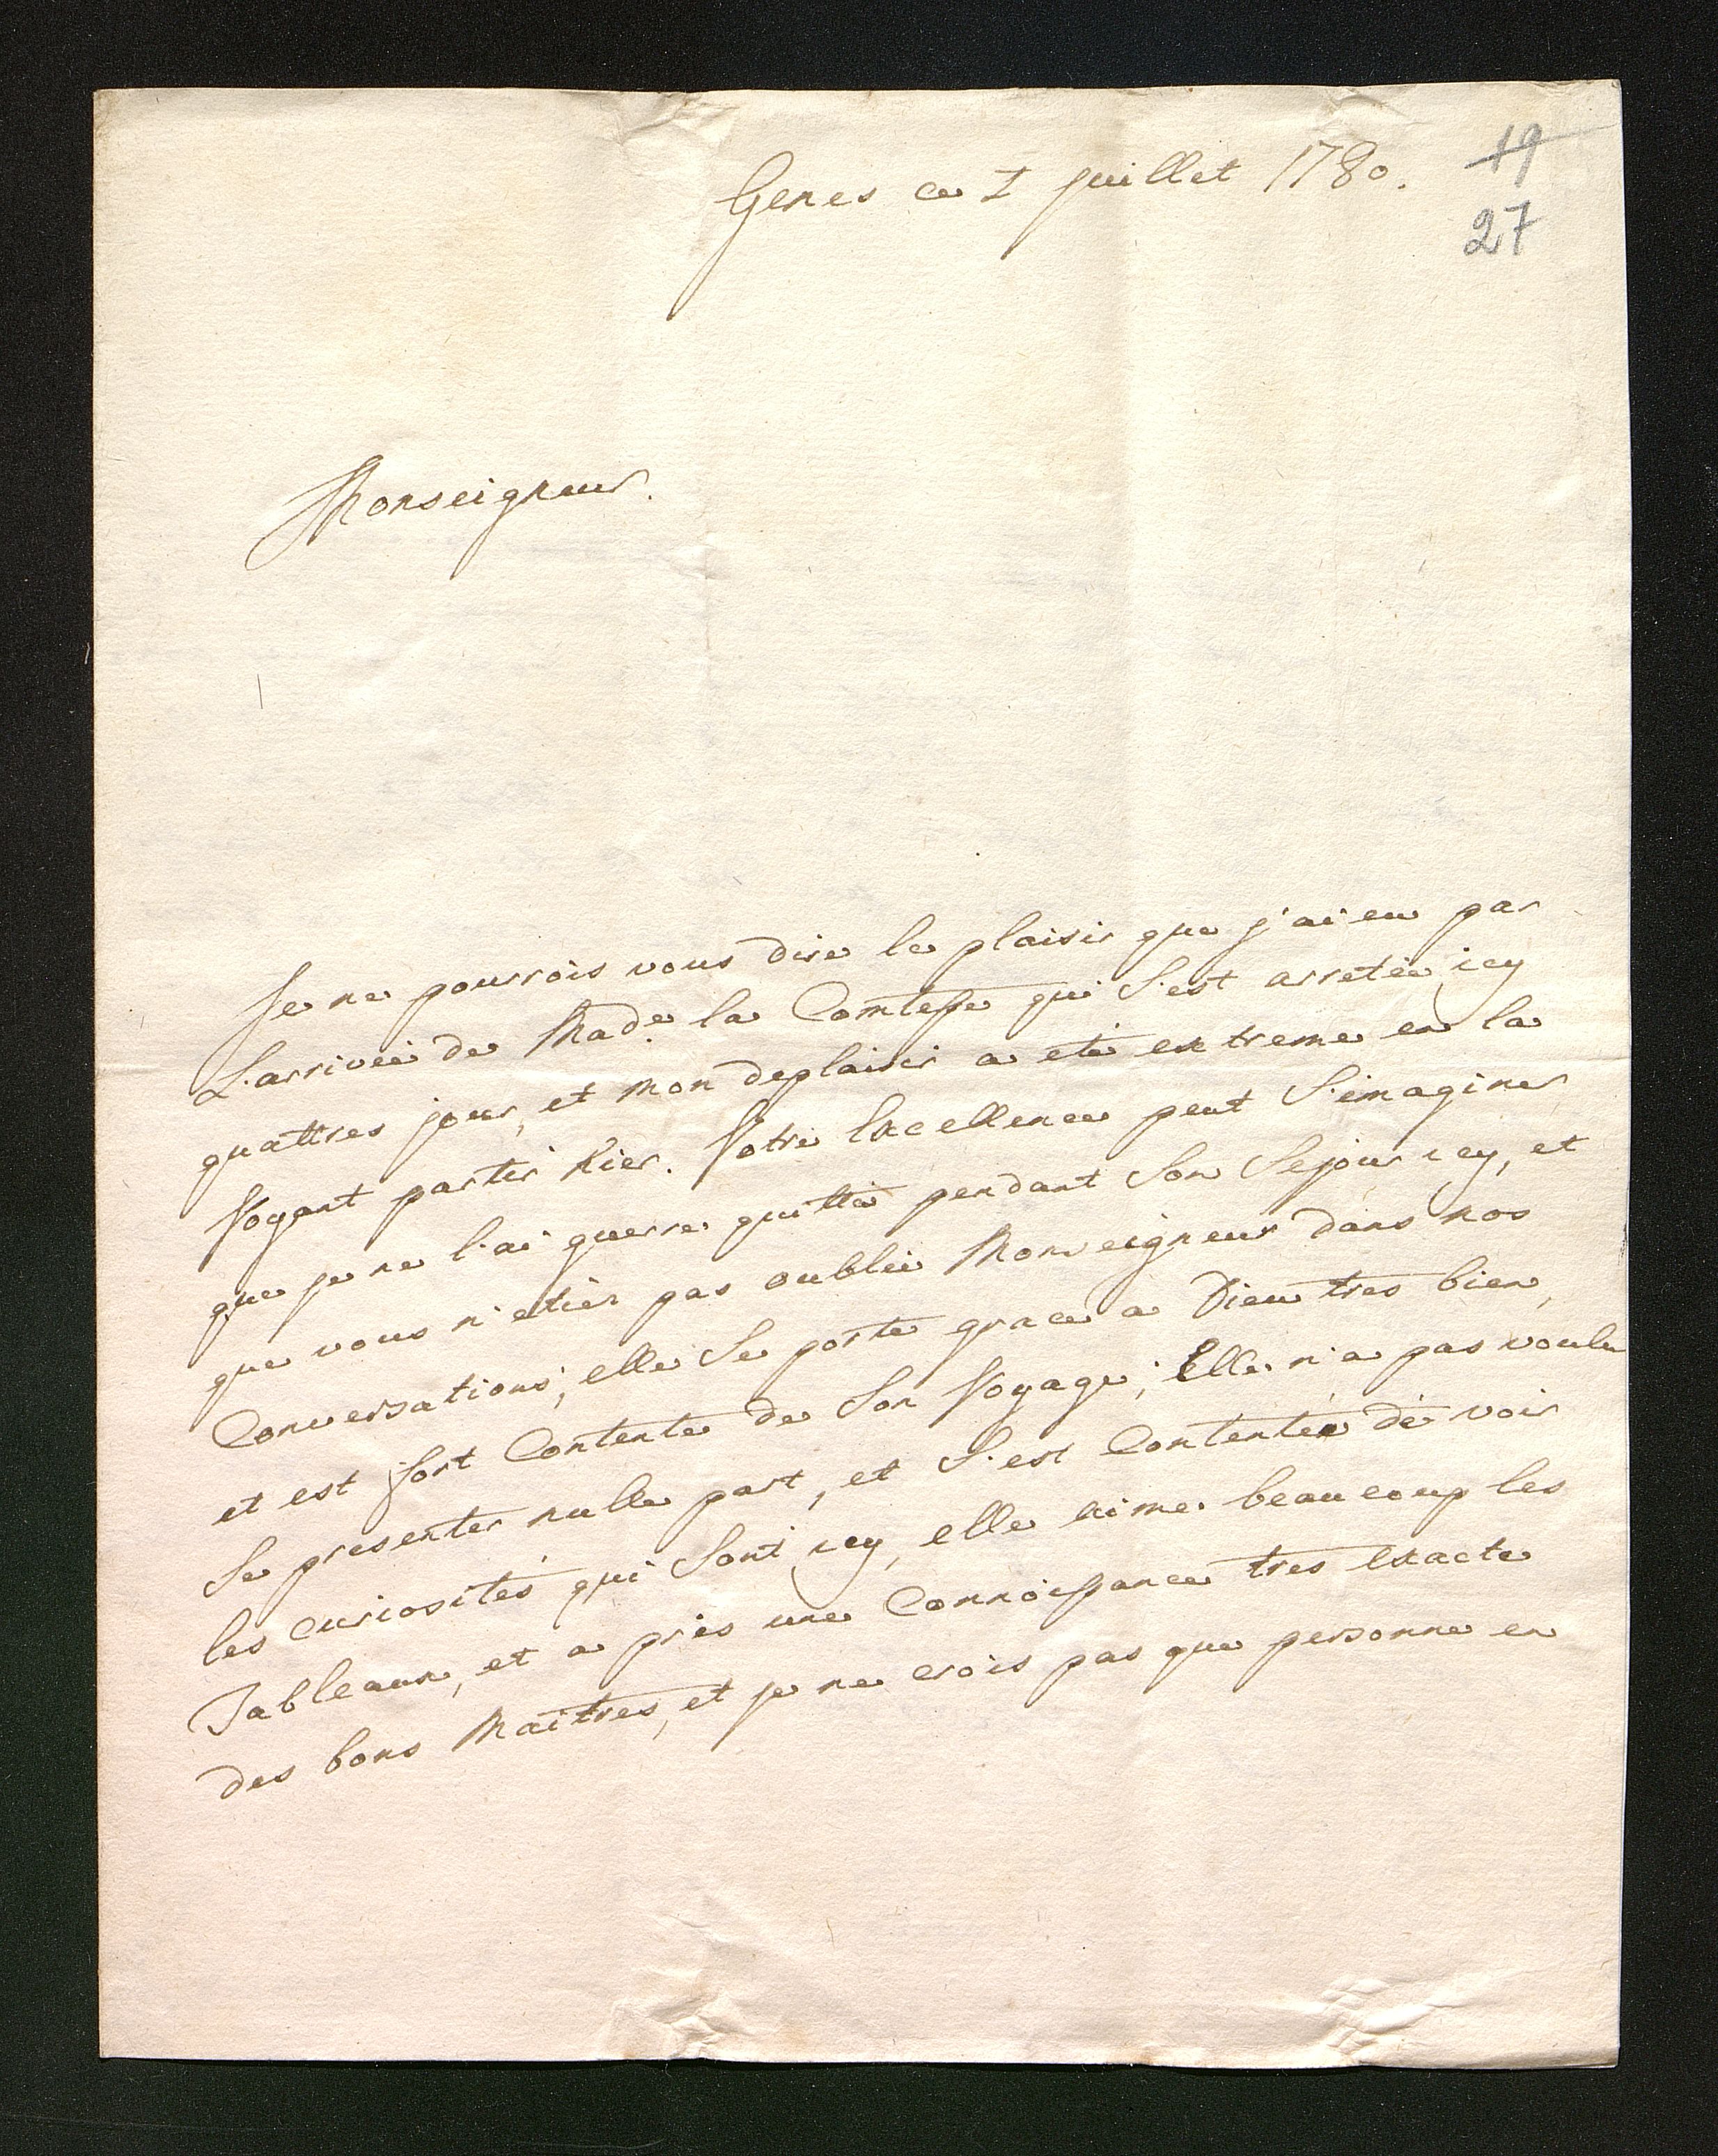 Genes ce 1 juillet 1780.
19
27
Monseigneur.
Je ne pourrois vous dire le plaisir que j'ai eu par
L'arriveé de Made. la Comtesse qui S'est arretée icy
quattres jour, et mon deplaisir a eté extreme en la
Voyant partir hier. Votre Excellence peut S'imaginer
que je ne l'ai guerre quitté pendant Son Sejour icy, et
que vous n'etiés pas oublié Monseigneur dans nos
Conversations, elle Se porte grace a Dieu tres bien,
et est fort Contente de Son Voyage, Elle n'a pas voulu
Se presenter nulle part, et S'est Contentée de voir
les Curiosités qui Sont icy, elle aime beaucoup les
Tableaux, et a pris une Connoissance tres Exacte
des bons Maîtres, et je ne crois pas que personne en